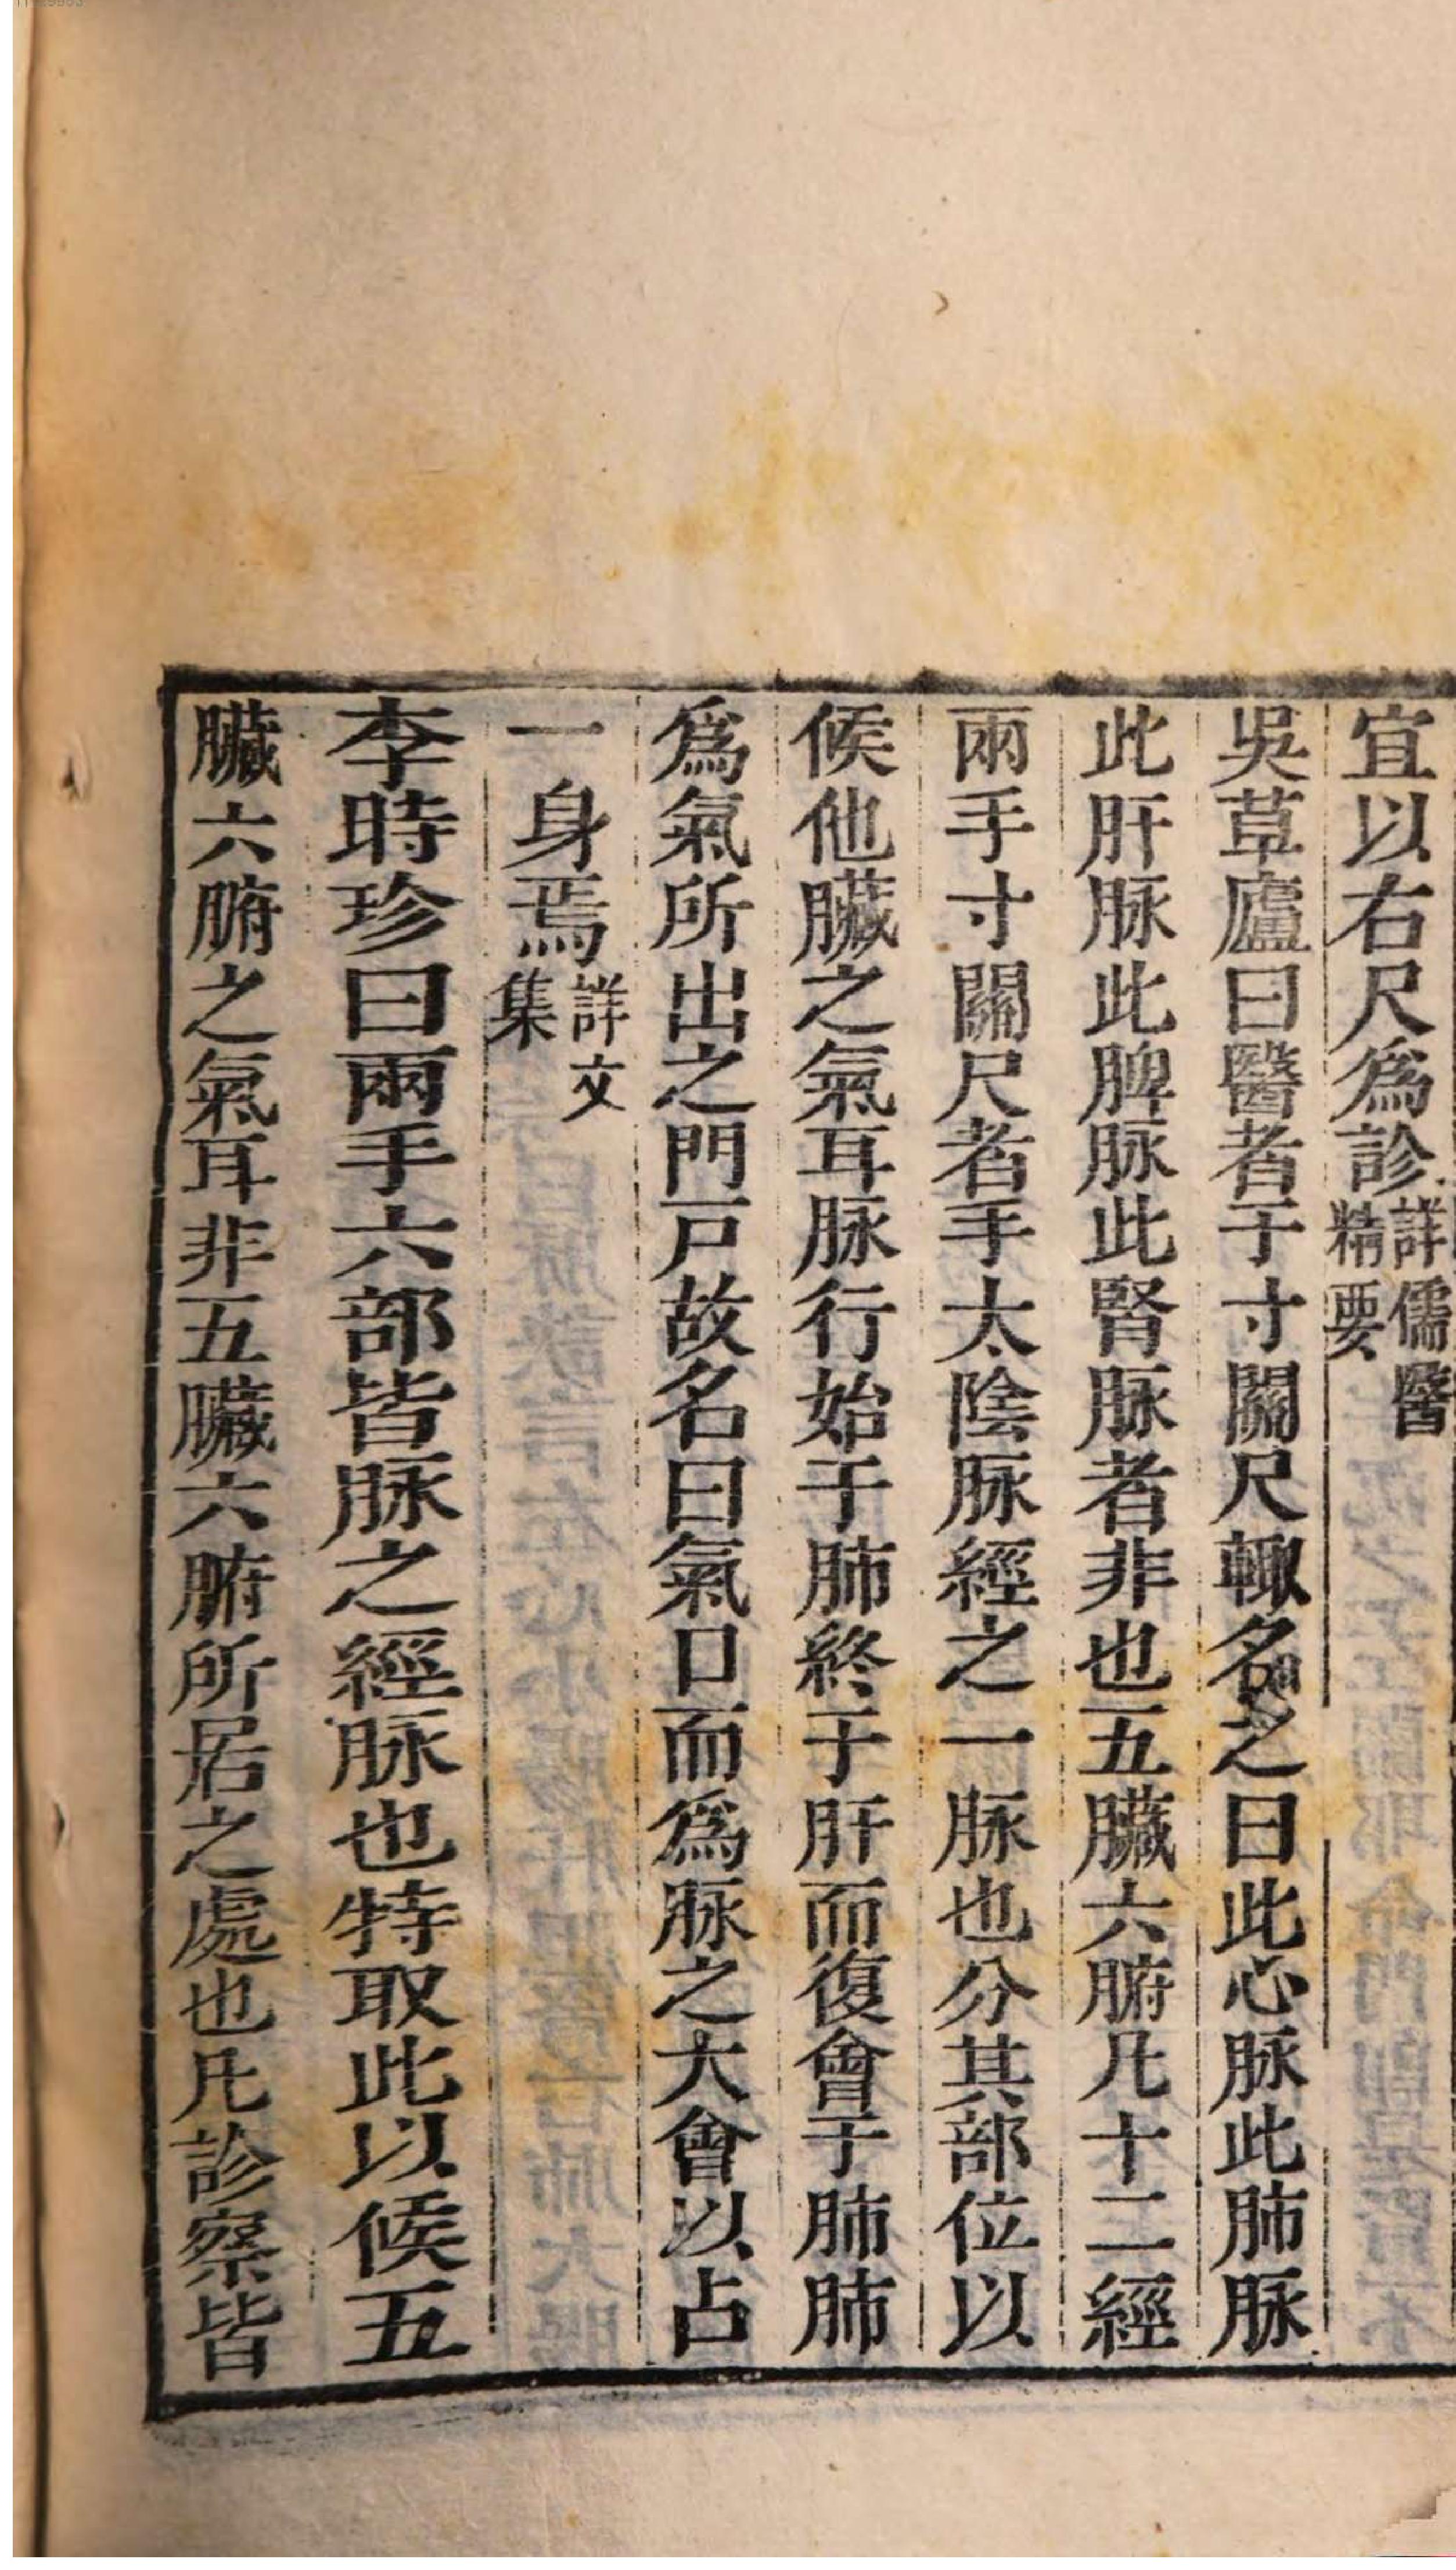 宜以右尺爲診詳儒醫精要
吳草廬曰醫者于寸關尺輙名之曰此心脉此肺脉
此肝脉此脾脉此腎脉者非也五臟六腑凡十二經
兩手寸關尺者手太陰脉經之一脉也分其部位以
候他臟之氣耳脉行始于肺終于肝而復會于肺肺
爲氣所出之門戸故名曰氣口而爲脉之大會以占
一身焉詳文集
李時珍曰兩手六部皆脉之經脉也特取此以候五
臟六腑之氣耳非五臟六腑所居之處也凡診察皆